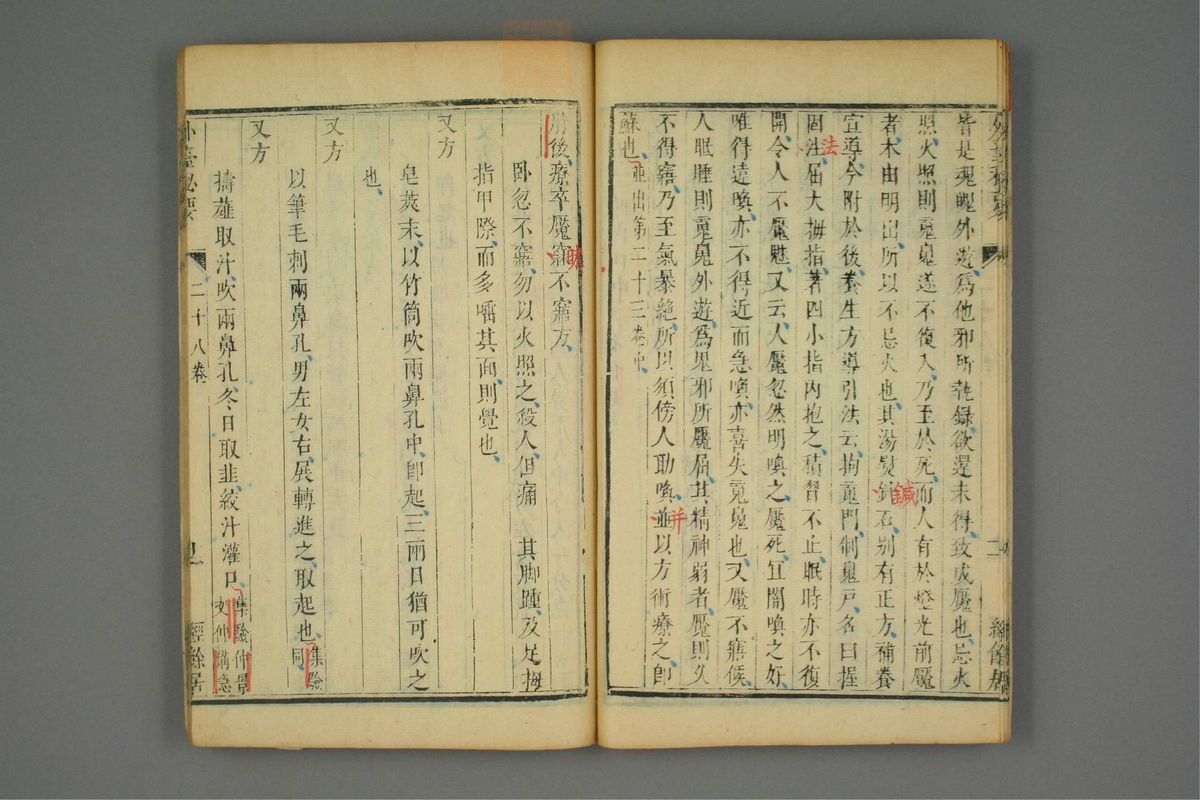 皆是魂魄外遊爲他邪所執録欲還未得致成魘也忌火
照火照則䰟魄遂不復入乃至於死而人有於燈光前魘
者本由明出所以不忌火也其湯熨針石别有正方補養
鍼
宣導今附於後養生方導引法云拘䰟門制魄戸名曰握
固法屈大拇指著四小指内抱之積習不止眠時亦不復
法
開令人不魘魅又云人魘忽然明喚之魘死宜闇喚之好
唯得遠喚亦不得近而急喚亦喜失䰟魄也又魘不寤候
人眠睡則䰟魄外遊爲鬼邪所魘屈其精神弱者魘則久
不得寤乃至氣暴絶所以須傍人助喚並以方術療之即
并
蘇也並出第二十三卷中
肘後療卒魘寐不寤方
卧忽不寤勿以火照之殺人但痛 其脚踵及足拇
指甲際而多唾其面則覺也
又方
皂莢末以竹筒吹兩鼻孔中即起三兩日猶可吹之
也
又方
以筆毛刺兩鼻孔男左女右展轉進之取起也集驗同
又方
擣薤取汁吹兩鼻孔冬日取韭絞汁灌口
外臺秘要
二十八卷
經餘居